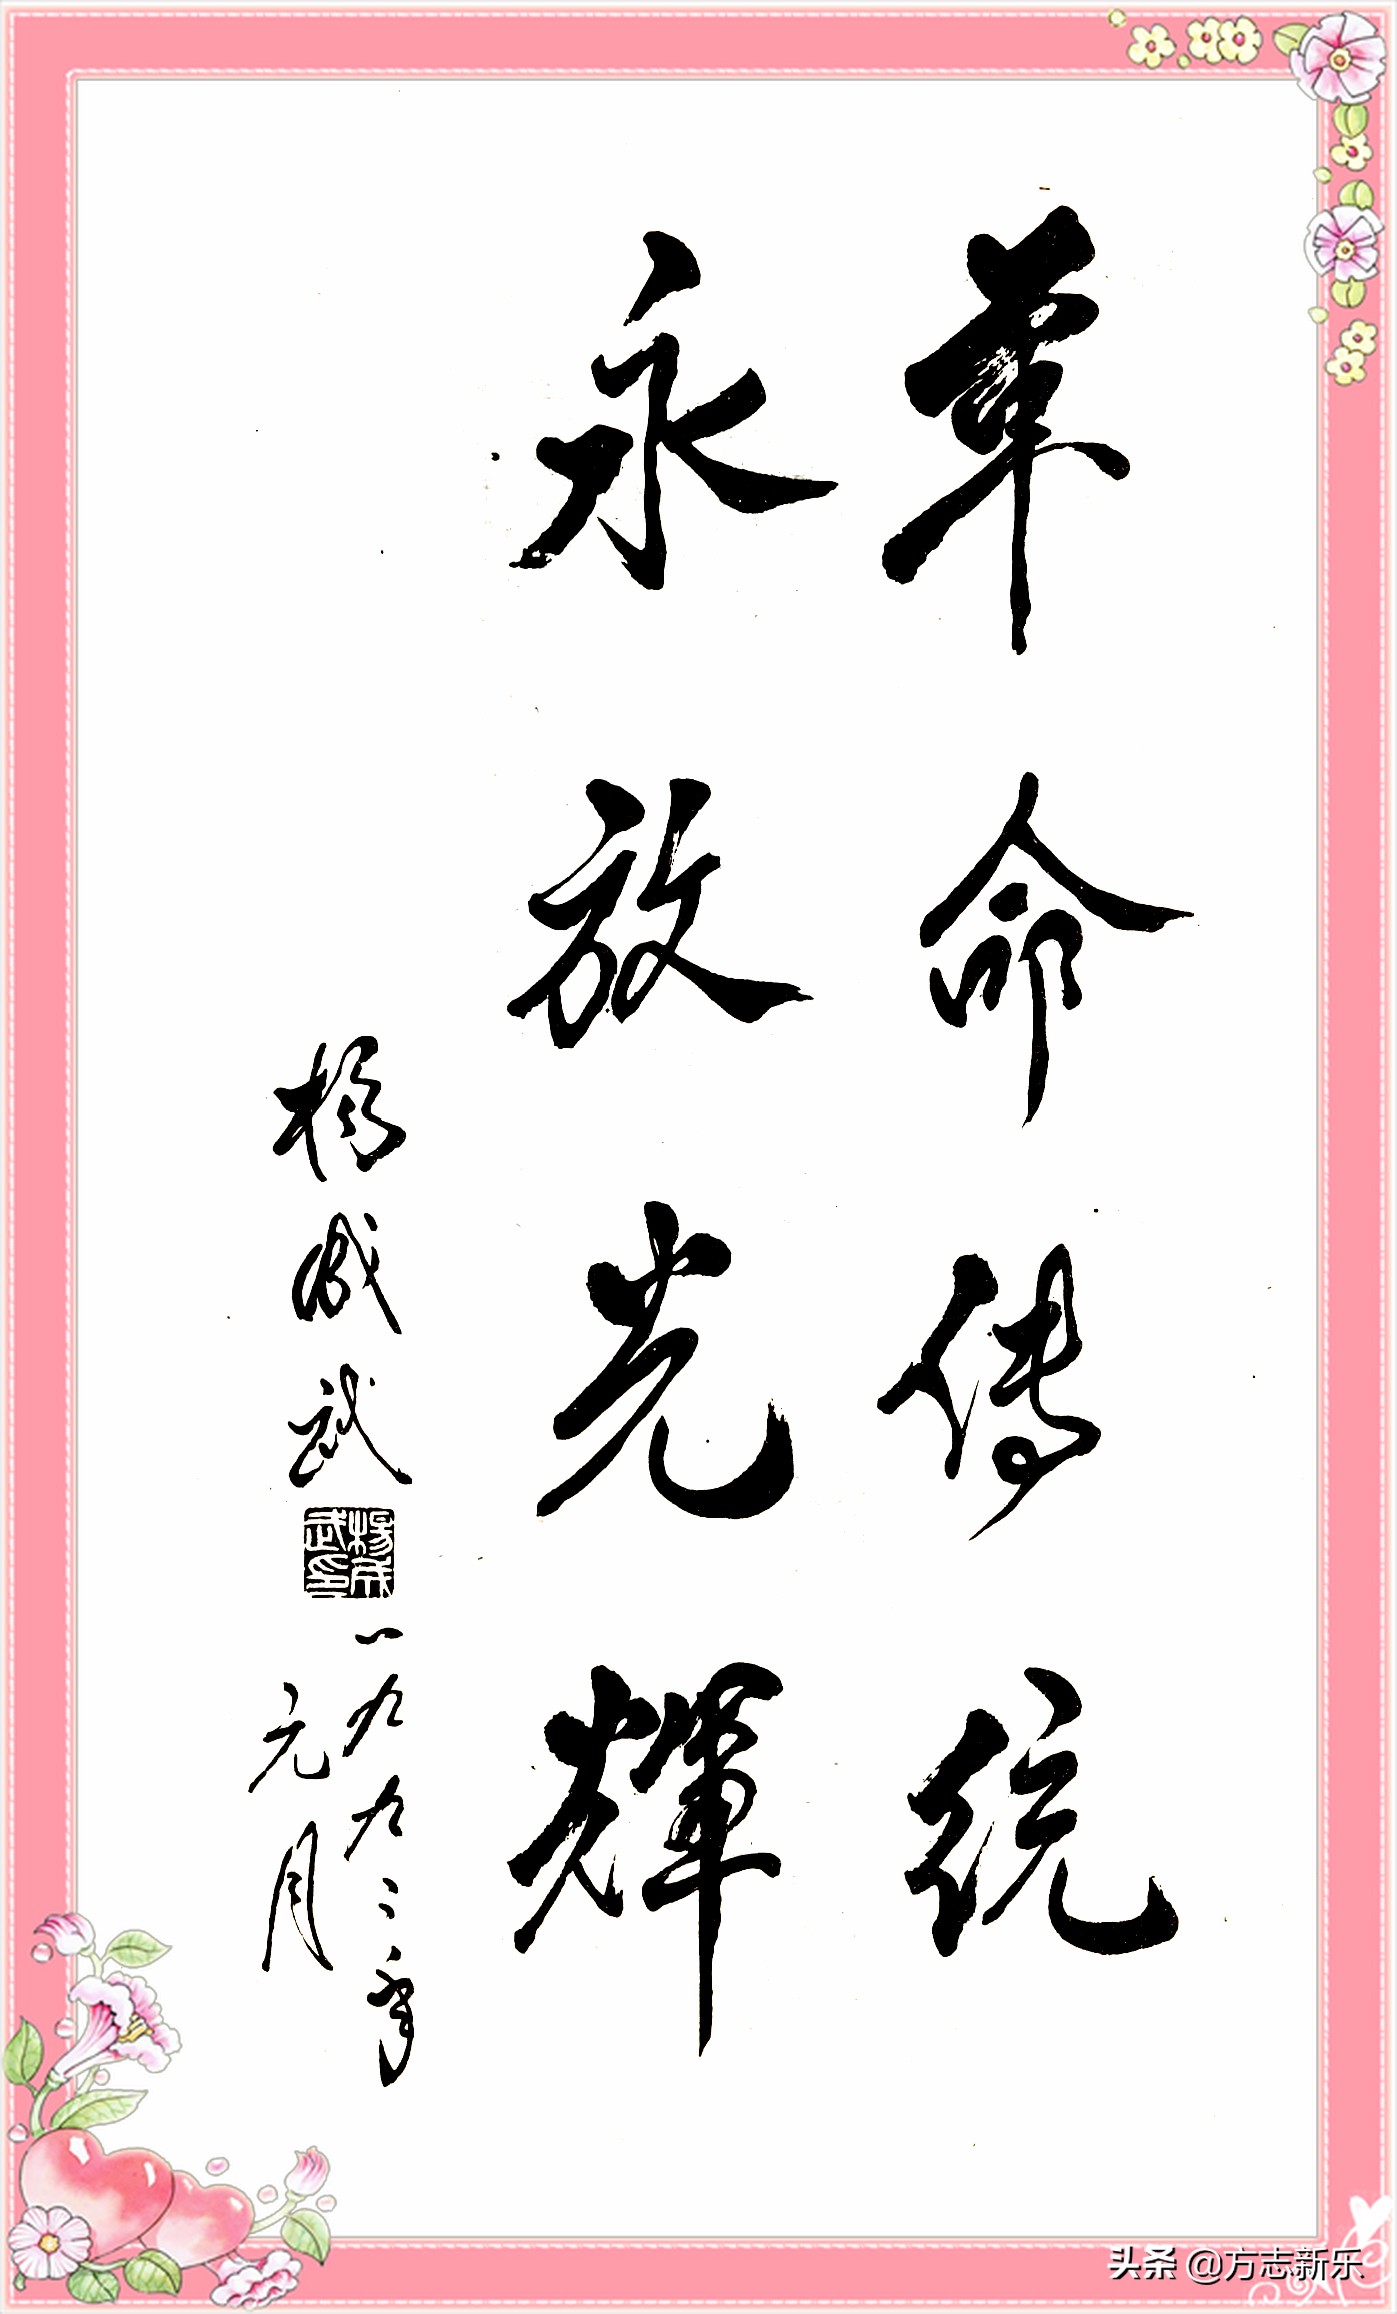 革命传统
永放光辉
杨成武
楊成武印
一九九二年
元月
头条 @方志新乐